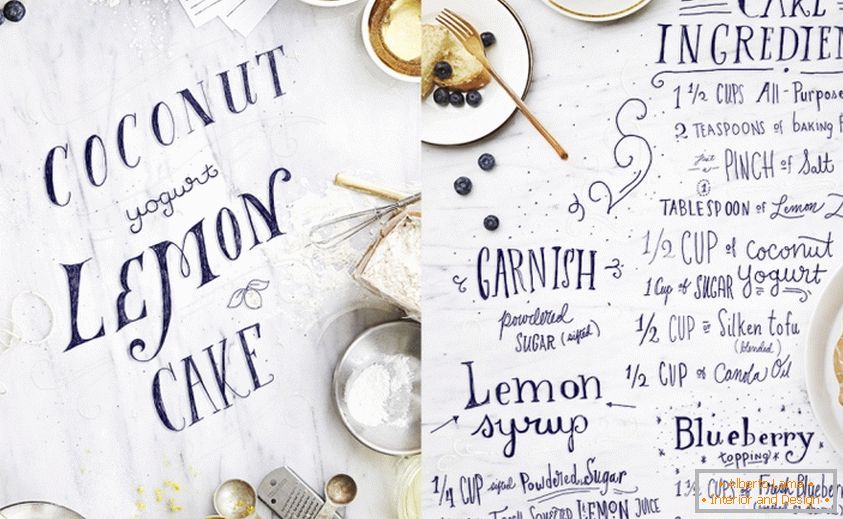 COCONUT
yogurt
LEMON
CAKE
CAKE
INGREDIEN
1 1/2 CUPS All-Purpose
2 TEASPOONS of baking
PINCH of Salt
1
TABLESPOON of Lemon Z
1/2 CUP of coconut
1 Cup of SUGAR Yogurt
1/2 CUP Silken tofu
(blended)
1/2 CUP of Canola Oil
GARNISH
powdered
SUGAR (sifted)
Lemon
syrup
1/4 CUP sifted Powdered Sugar
Squeezed LEMON JUICE
Blueberry
topping
CUPS of Fresh Blueber
Interior and Design